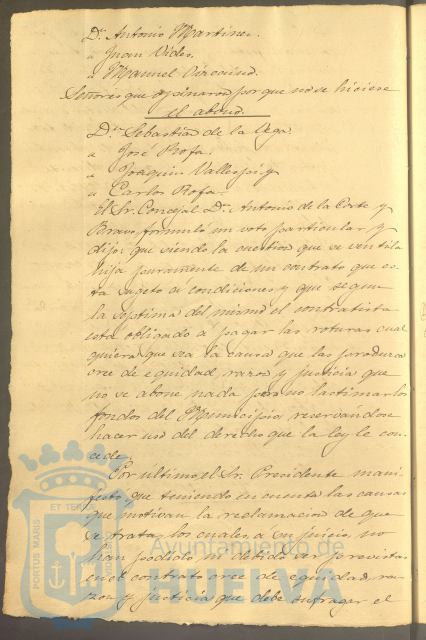 D.ⁿ Antonio Martinez.
" Juan Vides.
" Manuel
Señores que opinaron porque no se hiciese
el abono.
D.ⁿ Sebastian de la Vega.
" José Rofa.
" Joaquin Vallejo, y
" Carlos Rofa.
El Sr. Concejal D.ⁿ Antonio de la Corte y
Bravo formuló un voto particular y
dijo: que siendo la cuestion que se ventila
hija puramente de un contrato que es-
ta sugeto a condiciones y que segun
la septima del mismo el contratista
está obligado a pagar las roturas cual
quiera que sea la causa que las produzca
cree de equidad razon y justicia que
no se abone nada para no lastimar los
fondos del Municipio, reservandose
hacer uso del derecho que la ley le con-
cede.
Por ultimo, el Sr. Presidente mani-
festó que teniendo en cuenta las causas
que motivan la reclamacion de que
se trata, los cuales, a su juicio, no
han podido ni debido ser previstas
en el contrato cree de equidad, ra-
zon y justicia que debe sufragar el
PORTUS MARIS ET TERRE
Ayuntamiento de
HUELVA